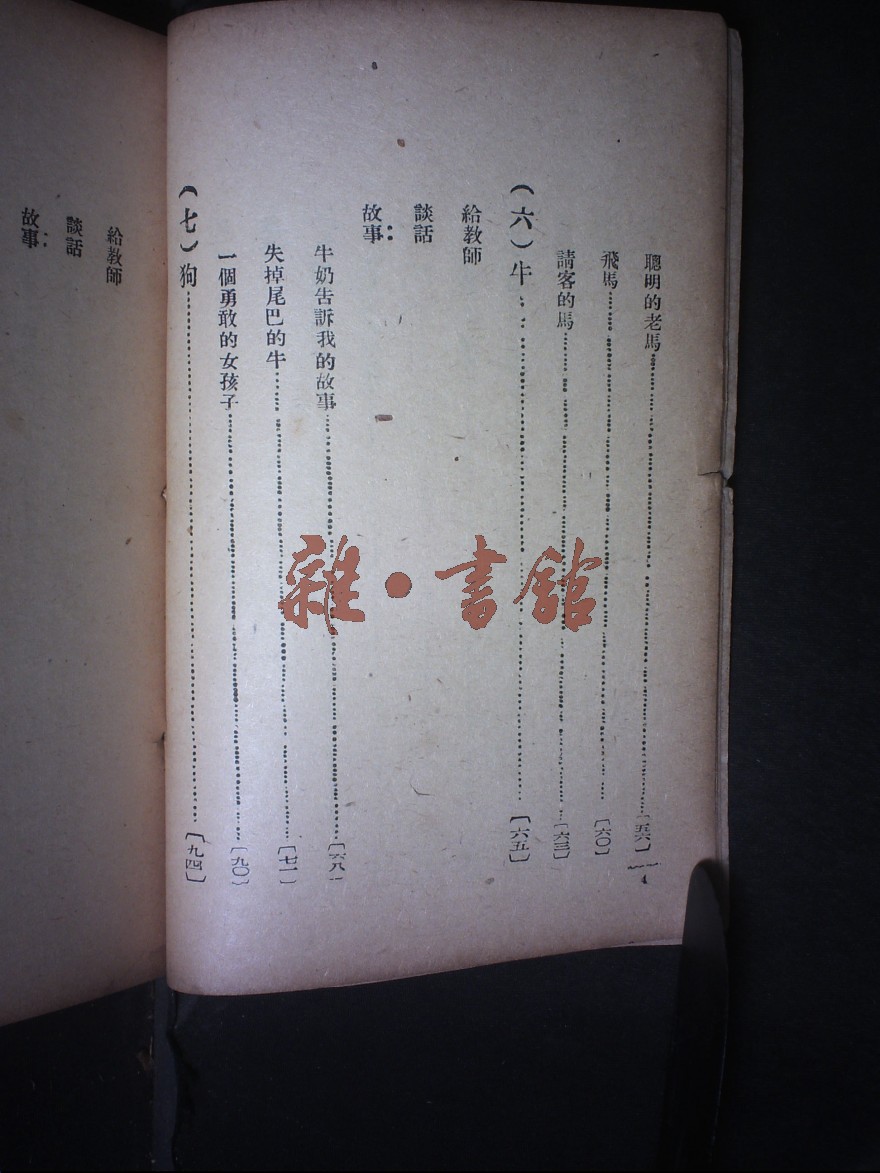 聰明的老馬〔五六〕
飛馬〔六〇〕
請客的馬〔六三〕
（六）牛〔六五〕
給教師
談話
故事：
牛奶告訴我的故事〔六八〕
失掉尾巴的牛〔七一〕
一個勇敢的女孩子〔九〇〕
（七）狗〔九四〕
4
給教師
談話
故事：
雜・書館